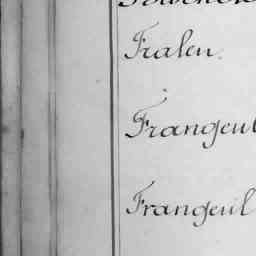 Fralen.
Frangeul
Frangeuil